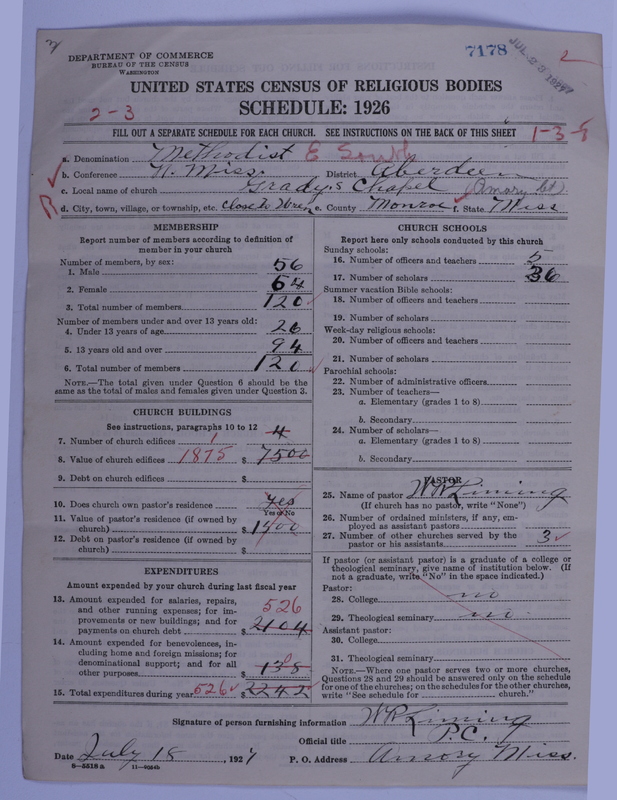 7178
JUL 23 1927
2
DEPARTMENT OF COMMERCE
BUREAU OF THE CENSUS
WASHINGTON
UNITED STATES CENSUS OF RELIGIOUS BODIES
SCHEDULE: 1926
2-3
FILL OUT A SEPARATE SCHEDULE FOR EACH CHURCH. SEE INSTRUCTIONS ON THE BACK OF THIS SHEET
1-3-
a. Denomination Methodist E South
b. Conference N. Miss. District Aberdeen
c. Local name of church Grady,s Chapel (Amory Ct)
d. City, town, village, or township, etc. Close to Wren e. County Monroe f. State Miss
MEMBERSHIP
Report number of members according to definition of
member in your church
Number of members, by sex:
1. Male 56
2. Female 64
3. Total number of members 120
Number of members under and over 13 years old:
4. Under 13 years of age 26
5. 13 years old and over 94
6. Total number of members 120
NOTE.—The total given under Question 6 should be the
same as the total of males and females given under Question 3.
CHURCH BUILDINGS
See instructions, paragraphs 10 to 12
7. Number of church edifices 1 4
8. Value of church edifices 1875 $ 7500
9. Debt on church edifices $
10. Does church own pastor's residence yes
Yes or No
11. Value of pastor's residence (if owned by
church) $ 1400
12. Debt on pastor's residence (if owned by
church) $
EXPENDITURES
Amount expended by your church during last fiscal year
13. Amount expended for salaries, repairs,
and other running expenses; for im-
provements or new buildings; and for
payments on church debt $ 2104
526
14. Amount expended for benevolences, in-
cluding home and foreign missions; for
denominational support; and for all
other purposes 138
15. Total expenditures during year 526 $ 2242
CHURCH SCHOOLS
Report here only schools conducted by this church
Sunday schools:
16. Number of officers and teachers 5
17. Number of scholars 36
Summer vacation Bible schools:
18. Number of officers and teachers
19. Number of scholars
Week-day religious schools:
20. Number of officers and teachers
21. Number of scholars
Parochial schools:
22. Number of administrative officers
23. Number of teachers—
a. Elementary (grades 1 to 8)
b. Secondary
24. Number of scholars—
a. Elementary (grades 1 to 8)
b. Secondary
PASTOR
25. Name of pastor W R Liming
(If church has no pastor, write "None")
26. Number of ordained ministers, if any, em-
ployed as assistant pastors
27. Number of other churches served by the
pastor or his assistants 3
If pastor (or assistant pastor) is a graduate of a college or
theological seminary, give name of institution below. (If
not a graduate, write "No" in the space indicated.)
Pastor:
28. College no
29. Theological seminary no
Assistant pastor:
30. College
31. Theological seminary
NOTE.—Where one pastor serves two or more churches,
Questions 28 and 29 should be answered only on the schedule
for one of the churches; on the schedules for the other churches,
write "See schedule for church."
Signature of person furnishing information W R Liming
Official title P.C.
Date July 18, 1927 P. O. Address Amory Miss.
8—5518 a 11—9264b